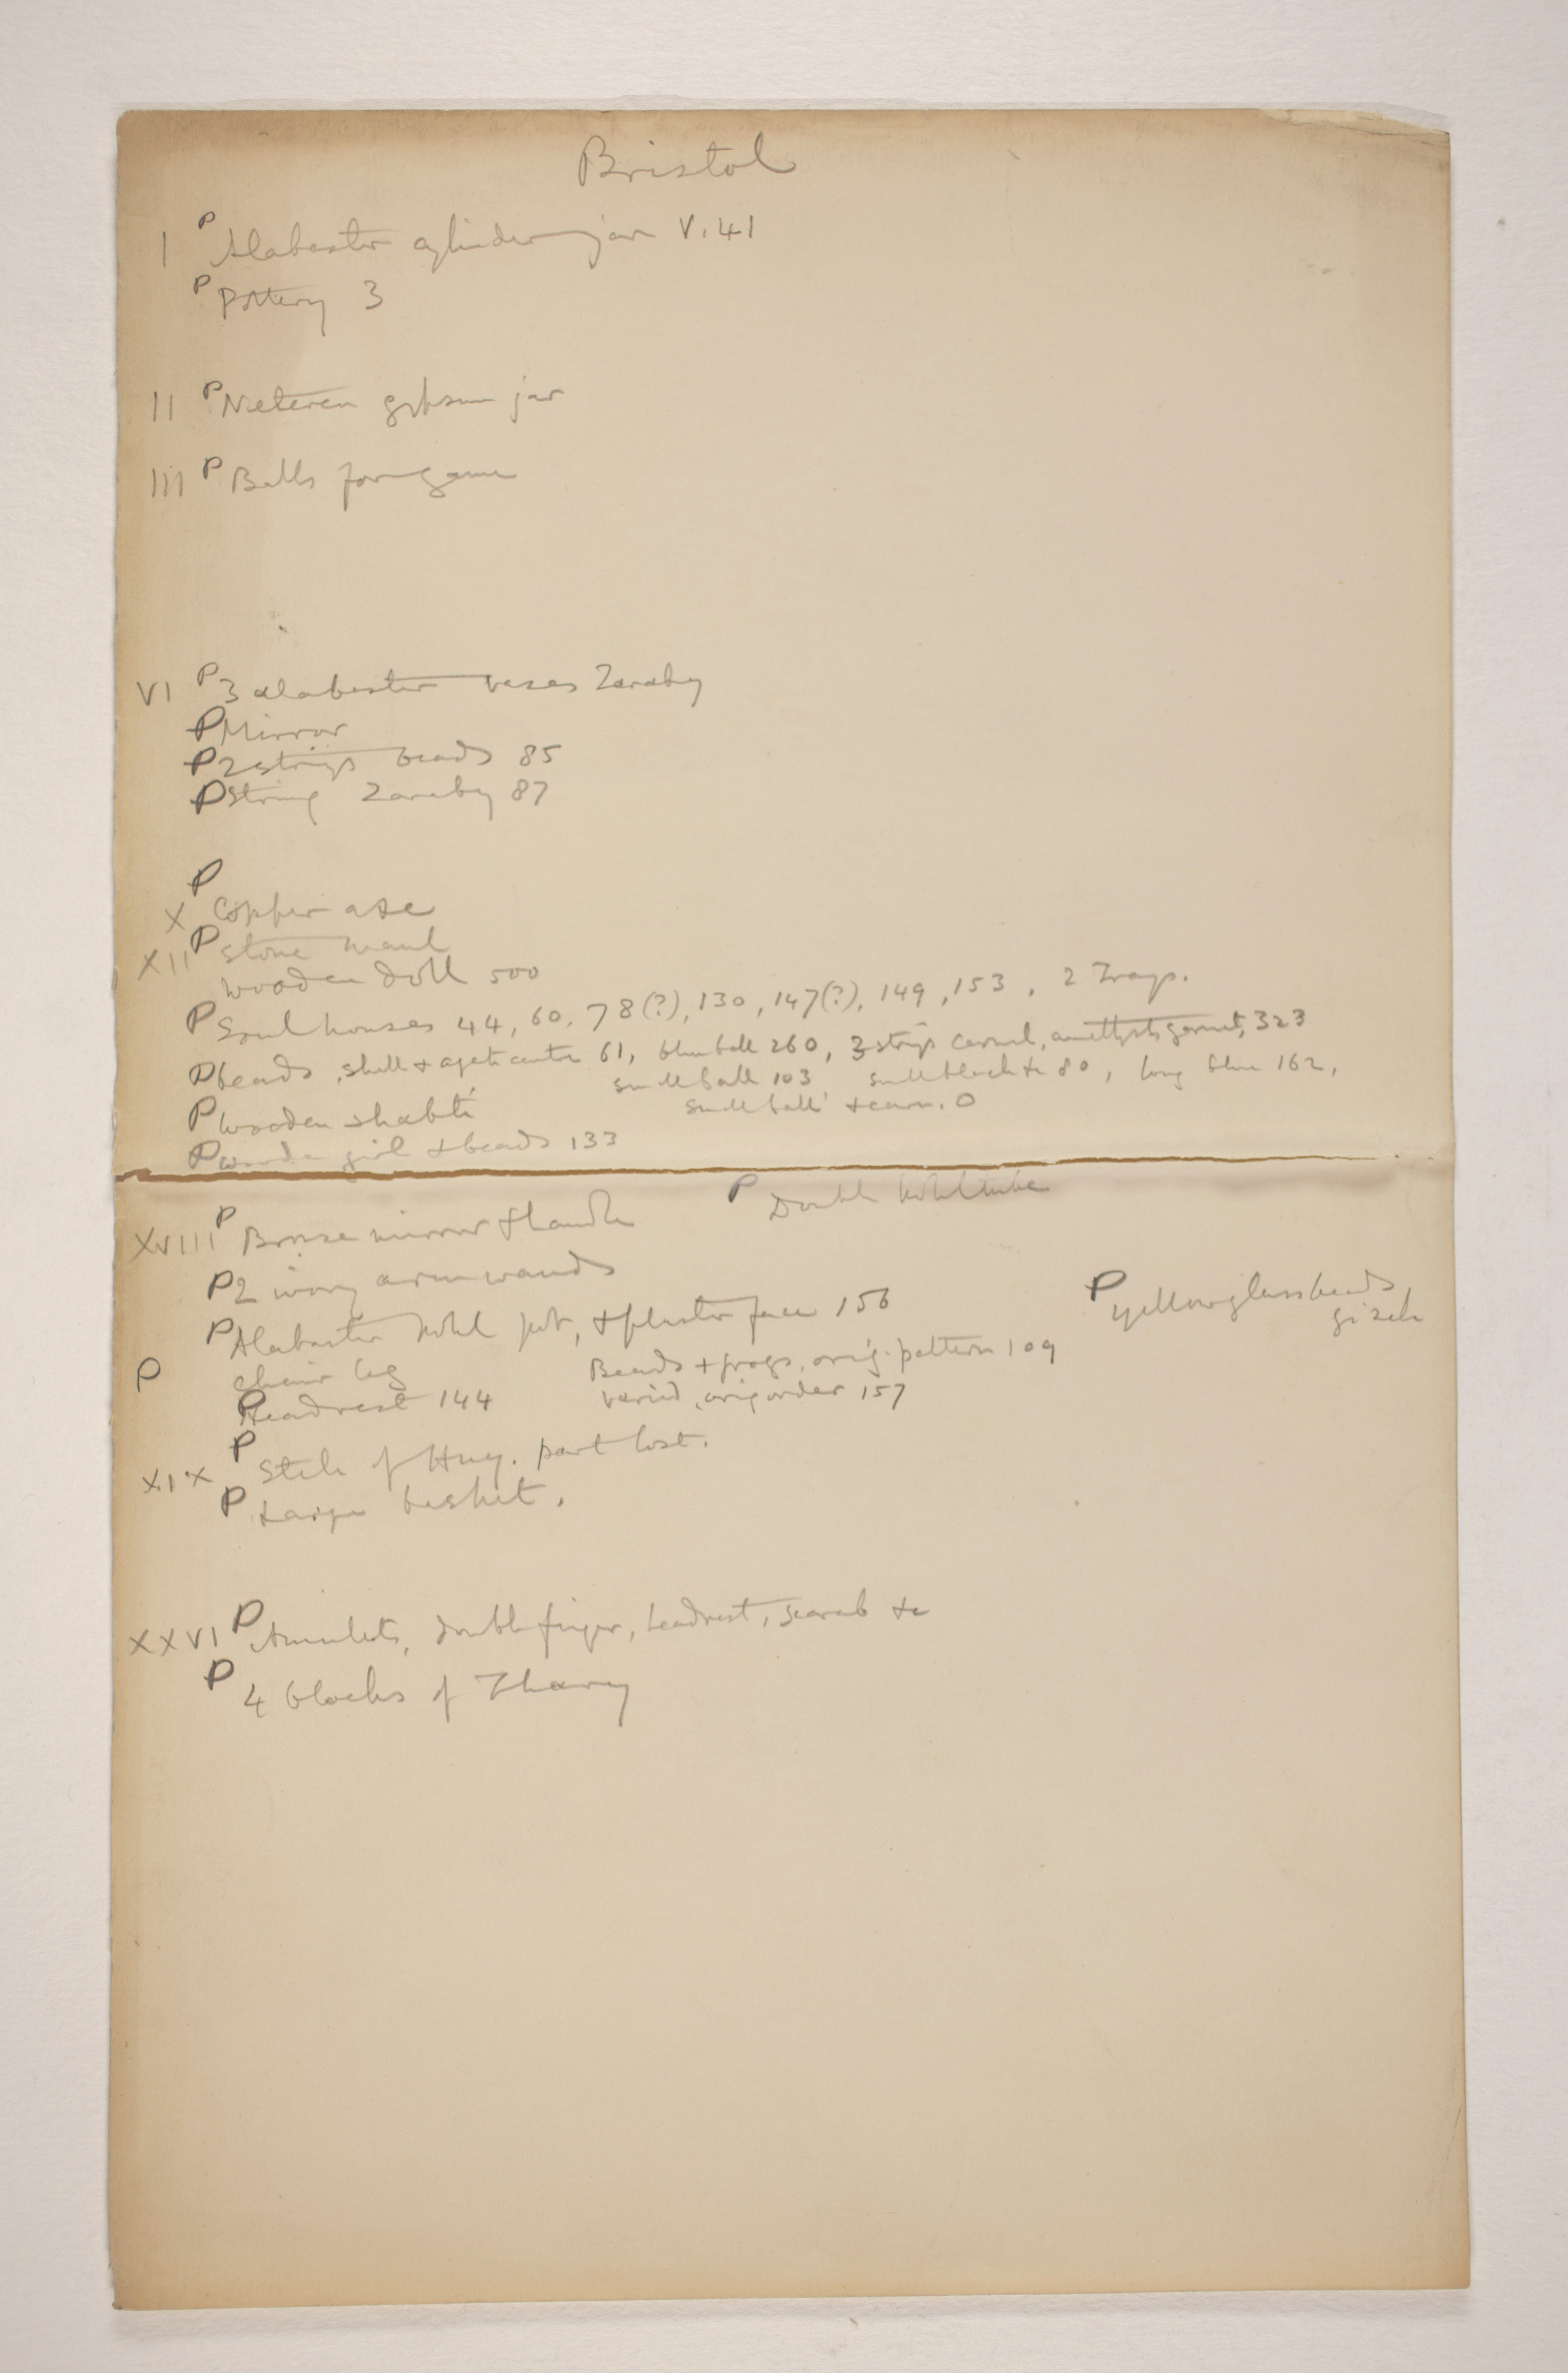 Bristol
I P Alabaster cylinder jar V.41
P Pottery 3
II P Neteren gypsum jar
III P Balls for game
VI P 3 alabaster vases Zaraby
P Mirror
P 2 strings beads 85
P String Zaraby 87
P
X Copper axe
XII P Stone maul
Wooden doll 500
P Soul houses 44, 60, 78(?), 130, 147(?), 149, 153, 2 Trays.
P beads, shell & agate centre 61, blue ball 260, 3 strings carnel, amethyst, garnet, 323
small ball 103 small black &c 80, long blue 162,
P Wooden shabti small ball & carn. O
P Wooden girl & beads 133
XVIII P Bronze mirror & handle P Double kohl tube
P 2 ivory arm wands
P Alabaster kohl pot, & plaster face 156 P yellow glass beads
Gizeh
P Chair leg Beads & frogs, orig. pattern 109
P Headrest 144 varied, orig order 157
P
XIX Stele of Huy. part lost.
P Large basket.
XXVI P Amulets, double finger, headrest, scarab &c
P 4 blocks of Thary